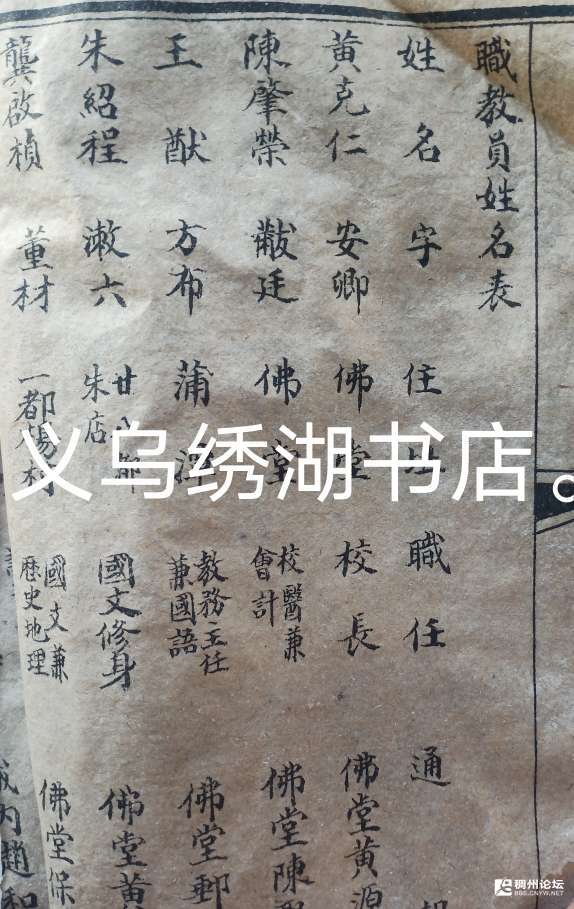 職教員姓名表
姓名 字 住址 職任 通
黃克仁 安卿 佛堂 校長 佛堂黃源
陳肇榮 黻廷 佛堂 校醫兼會計 佛堂陳
王猷 方布 蒲潭 教務主任兼國語 佛堂郵
朱紹程 漱六 廿八都朱店 國文修身 佛堂黃
龔啟楨 董材 一都楊村 國文兼歷史地理 佛堂保
内趙和
义乌绣湖书店。
稠州论坛
BBS.CNYW.NET